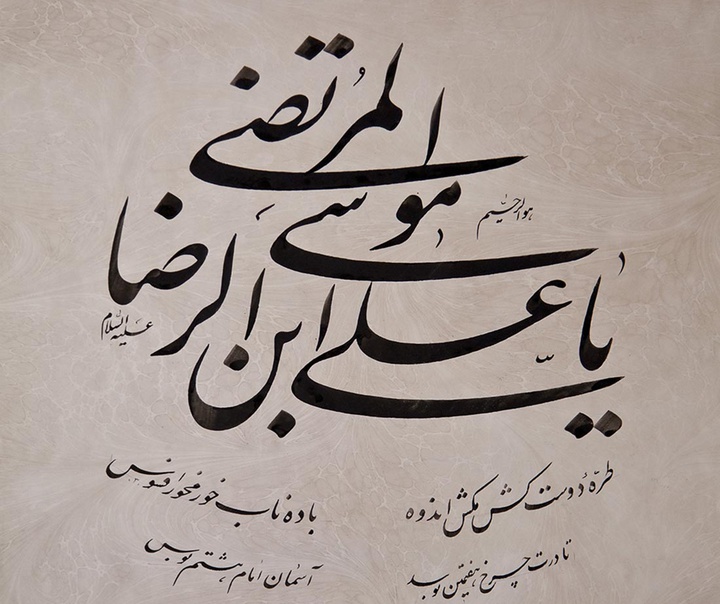 هوالرحیم
یا علی ابن موسی الرضا المرتضی
علیه السلام
طرهٔ دوست کش مکش اندوه
باده ناب خور مخور افسوس
تا درت چرخ هفتمین بوسد
آسمان امام هشتم بوس